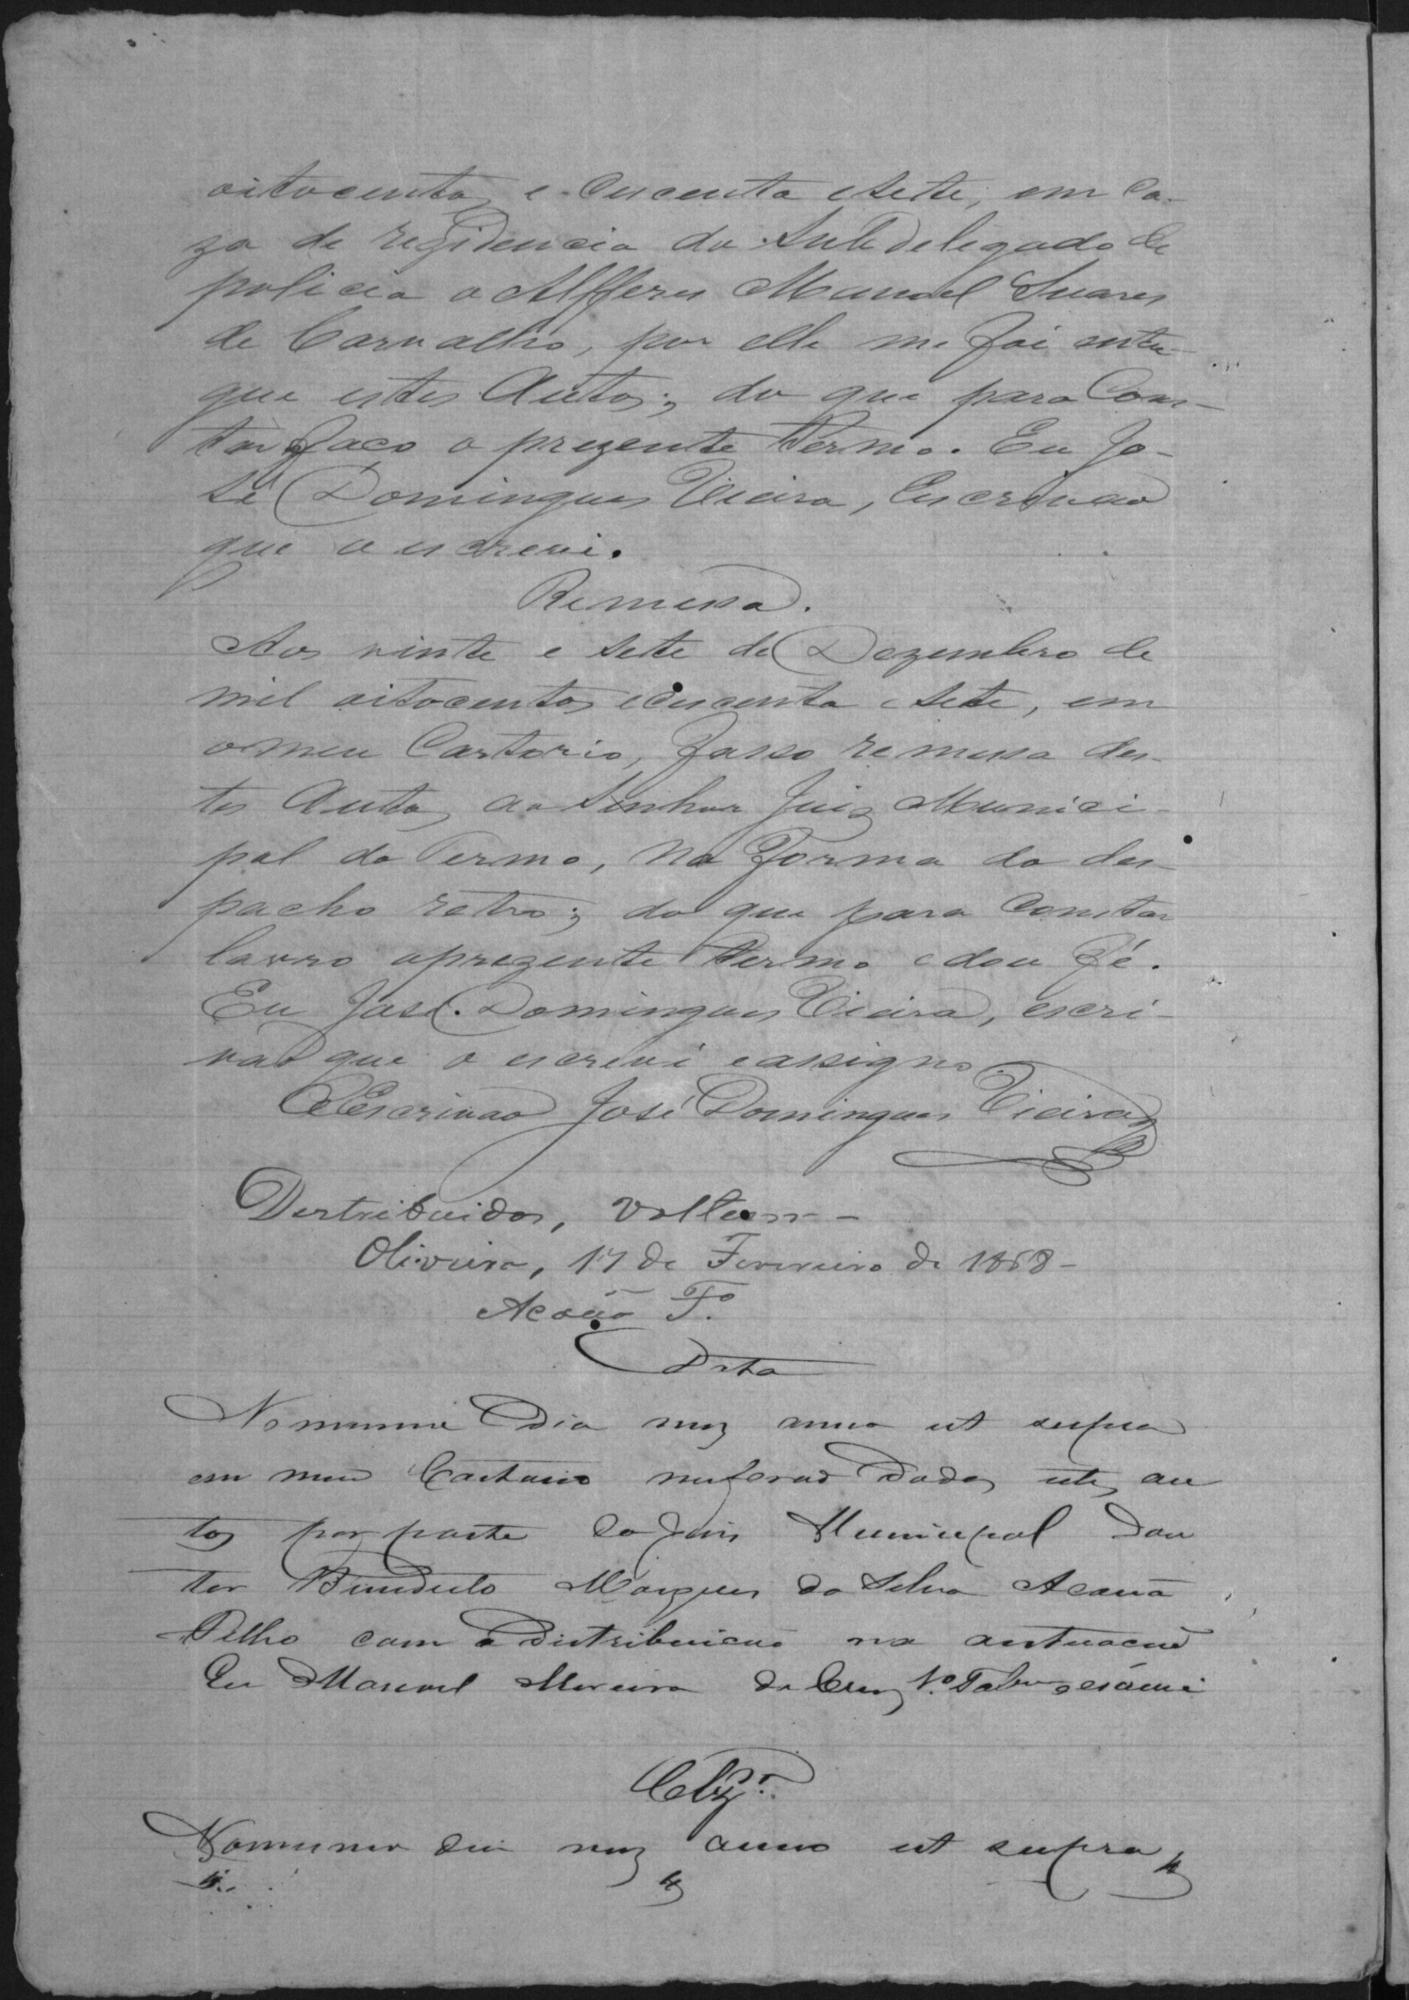 oitocentos e Cincoenta e sete, em Ca-
za de rezidencia do Subdelegado de
policia o Alfferes Manoel Suares
de Carvalho, por elle me foi entre-
gue estes Autos; do que para Cons-
tar faço o prezente Termo. Eu Jo-
sé Domingues Vieira, Escrivão
que o escrevi.
Remessa.
Aos vinte e sete de Dezembro de
mil oitocentos e cincoenta e sete, em
o meu Cartorio, fasso remessa des-
tes Autos ao Senhor Juiz Munici-
pal do Termo, na Forma do des-
pacho retro; do que para Constar
lavro o prezente Termo e dou fé.
Eu José Domingues Vieira, escri-
vão que o escrevi e assigno.
O Escrivão José Domingues Vieira
Destribuidos, voltem -
Oliveira, 17 de Fevereiro de 1858 -
Acauã Fº.
Data
No mesmo dia mez anno ut supra
em meu Cartorio me forão dados estes au
tos por parte do Juis Municipal Dou
tor Marques da Silva Acauã
Filho com a distribuicão na autuacão
Eu Manoel Moreira da Cruz escrevi
Clzº.
No mesmo dia mez anno ut supra